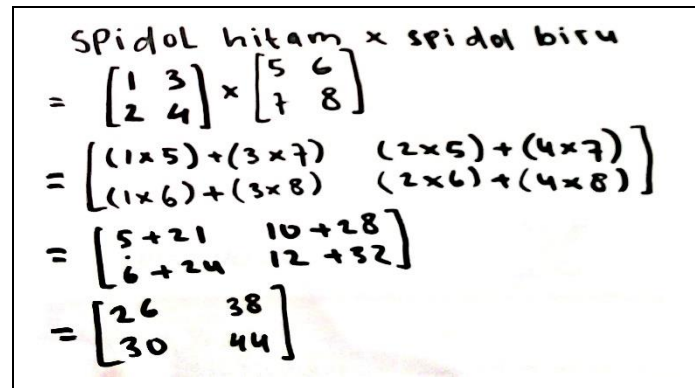 spidol hitam x spidol biru
= [1 3 2 4] x [5 6 7 8]
= [(1x5)+(3x7) (2x5)+(4x7)
(1x6)+(3x8) (2x6)+(4x8)]
= [5+21 10+28
6+24 12+32]
= [26 38
30 44]